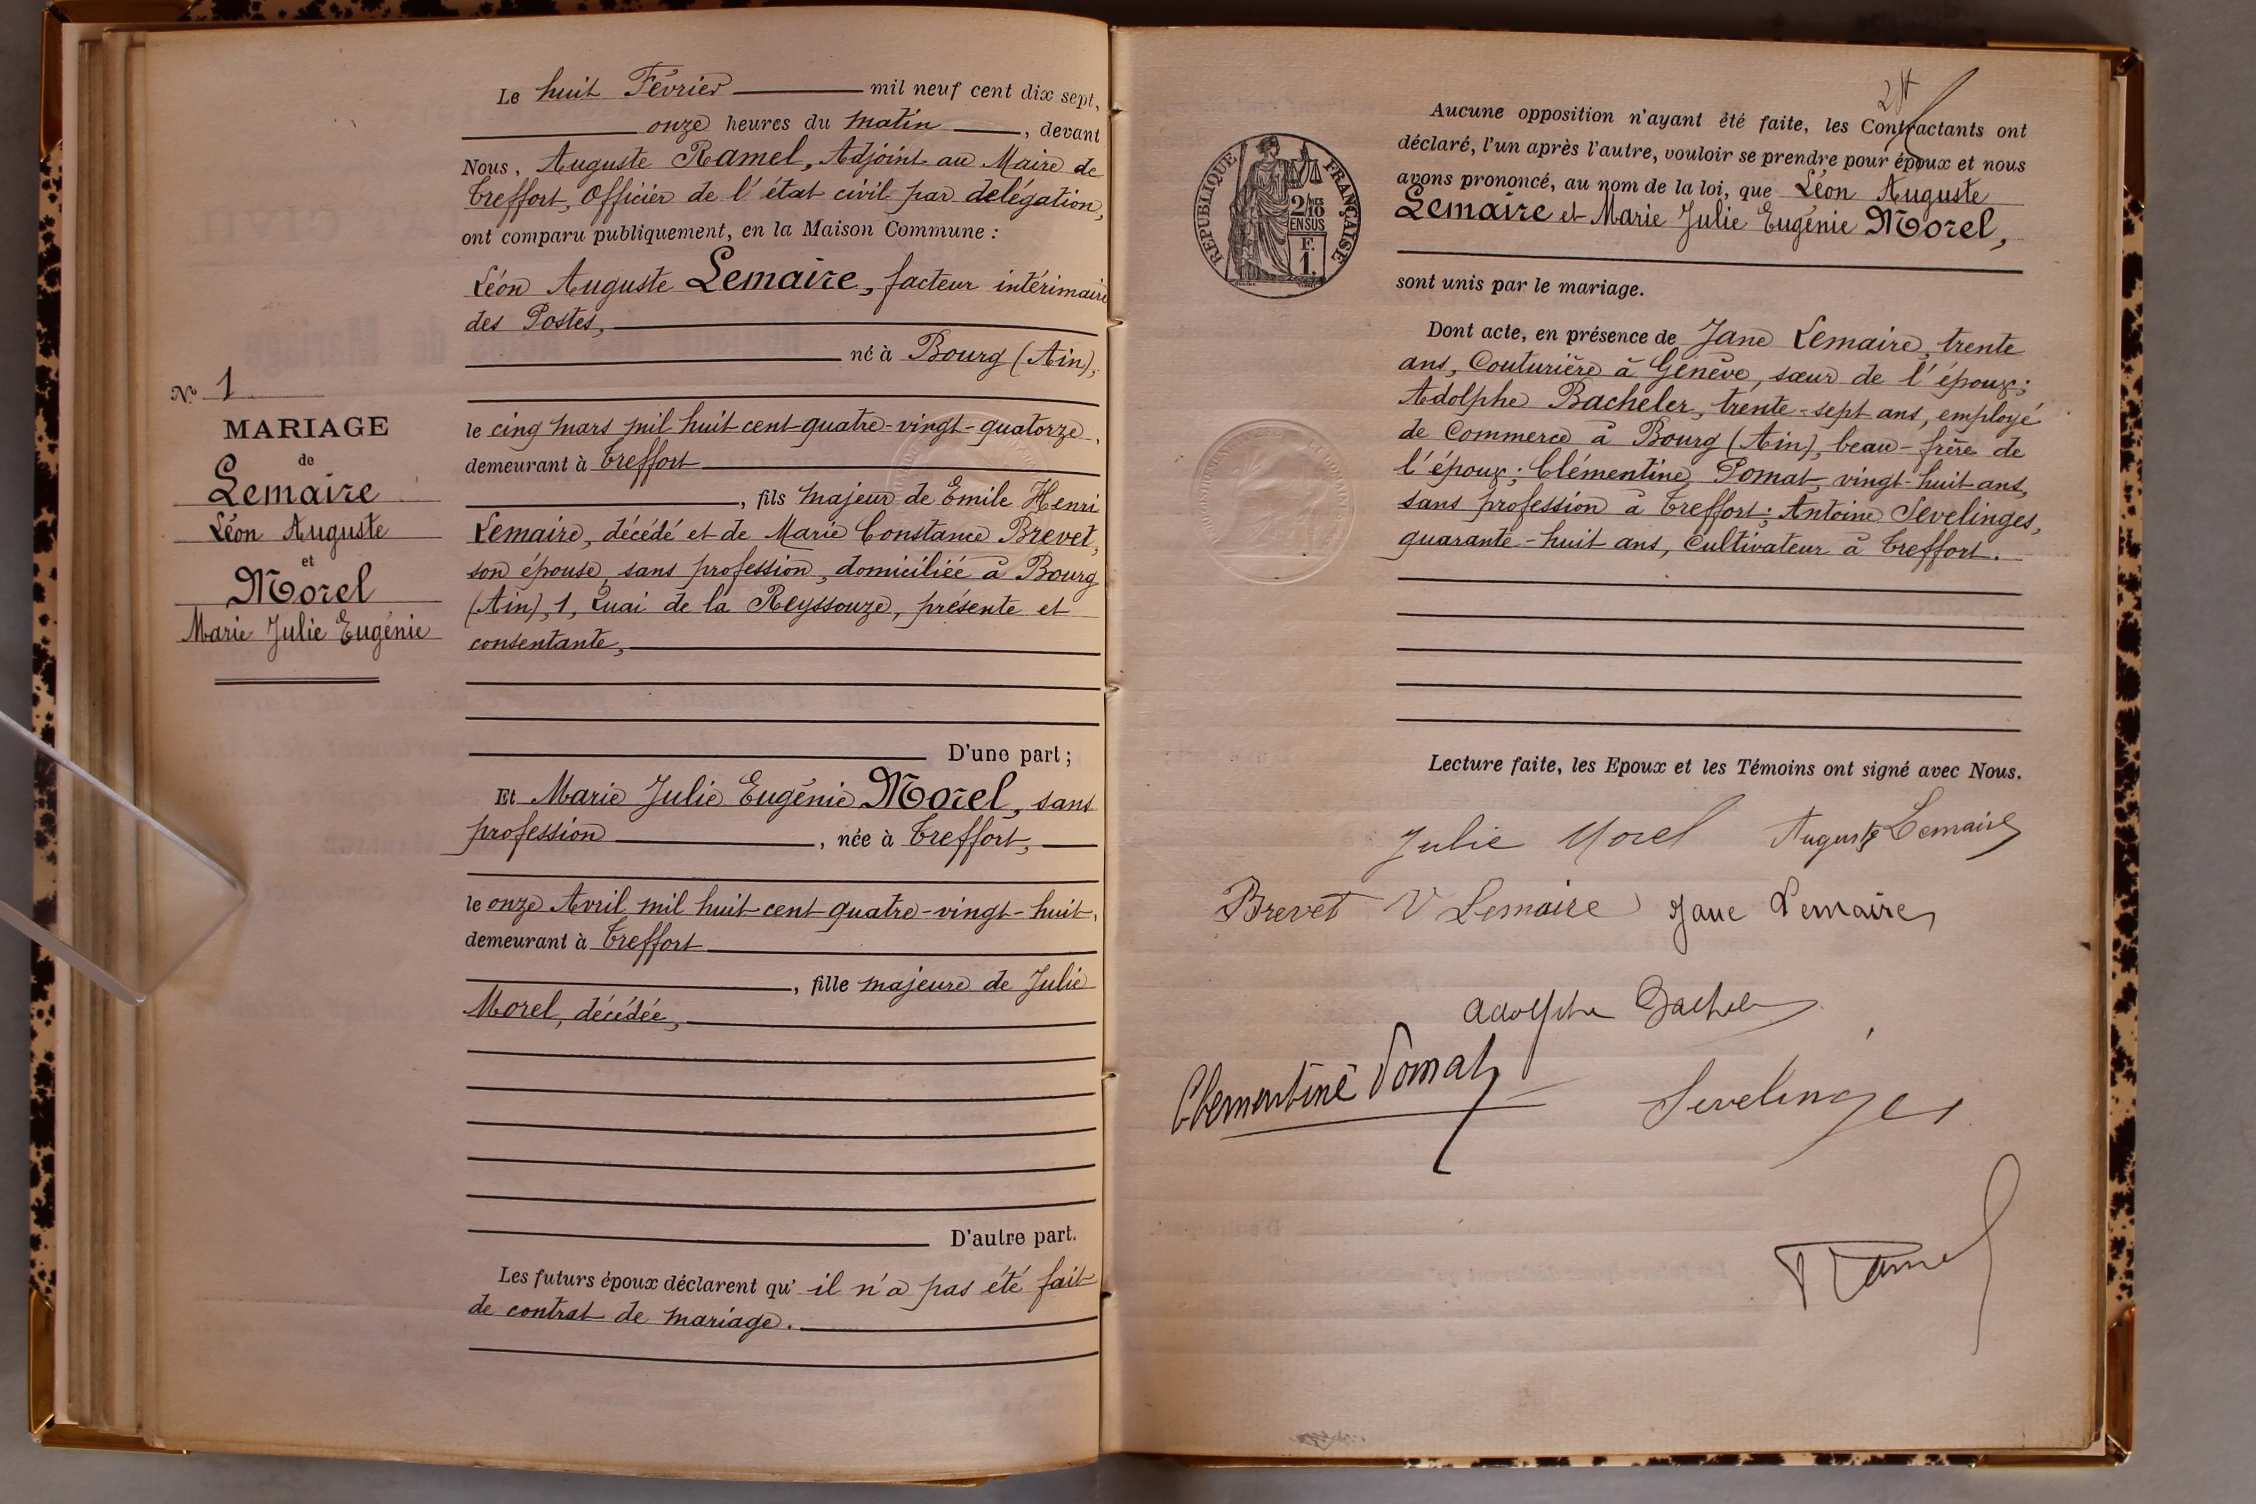 Le huit Février mil neuf cent dix sept,
onze heures du matin, devant
Nous, Auguste Ramel, Adjoint au Maire de
Treffort, Officier de l'état civil par delégation,
ont comparu publiquement, en la Maison Commune :
Léon Auguste Lemaire, facteur intérimaire
des Postes,
né à Bourg (Ain),
le cinq mars mil huit cent quatre-vingt-quatorze,
demeurant à Treffort
, fils majeur de Emile Henri
Lemaire, décédé et de Marie Constance Brevet,
son épouse, sans profession, domiciliée à Bourg
(Ain), 1, Quai de la Reyssouze, présente et
consentante,
D'une part ;
Et Marie Julie Eugénie Morel, sans
profession, née à Treffort,
le onze Avril mil huit cent quatre-vingt-huit,
demeurant à Treffort
, fille majeure de Julie
Morel, décédée,
D'autre part.
Les futurs époux déclarent qu'il n'a pas été fait
de contrat de mariage.
No 1
MARIAGE
de
Lemaire
Léon Auguste
et
Morel
Marie Julie Eugénie
Aucune opposition n'ayant été faite, les Contractants ont
déclaré, l'un après l'autre, vouloir se prendre pour époux et nous
avons prononcé, au nom de la loi, que Léon Auguste
Lemaire et Marie Julie Eugénie Morel,
sont unis par le mariage.
Dont acte, en présence de Jane Lemaire, trente
ans, Couturière à Genève, sœur de l'époux ;
Adolphe Bacheler, trente-sept ans, employé
de Commerce à Bourg (Ain), beau-frère de
l'époux ; Clémentine Pomat, vingt-huit ans,
sans profession à Treffort ; Antoine Sevelinges,
quarante-huit ans, Cultivateur à Treffort.
Lecture faite, les Epoux et les Témoins ont signé avec Nous.
Julie Morel Auguste Lemaire
Brevet V Lemaire Jane Lemaire
Adolphe Bacheler
Clementine Pomat
Sevelinges
Ramel
RÉPUBLIQUE FRANÇAISE
2/10 
EN SUS
F.
1.